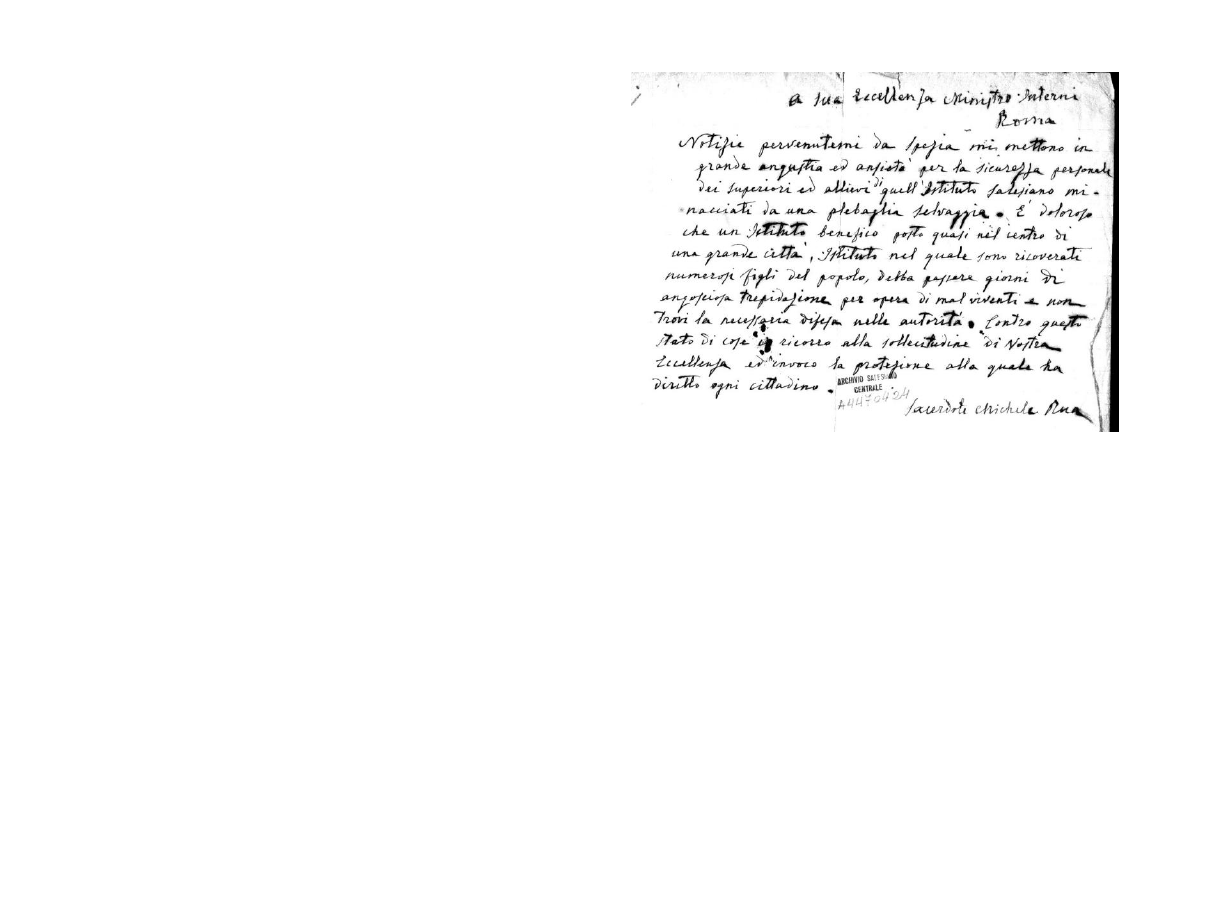 A Sua Eccellenza Ministro Interni
Roma
Notizie pervenutemi da Spezia mi mettono in
grande angustia ed ansietà per la sicurezza personale
dei superiori ed allievi di quell'Istituto Salesiano mi-
nacciati da una plebaglia selvaggia. È doloroso
che un Istituto benefico posto quasi nel centro di
una grande città, Istituto nel quale sono ricoverati
numerosi figli del popolo, debba passare giorni di
angosciosa trepidazione per opera di mal viventi e non
trovi la necessaria difesa nelle autorità. Contro questo
stato di cose io ricorro alla sollecitudine di Vostra
Eccellenza ed invoco la protezione alla quale ha
diritto ogni cittadino.
ARCHIVIO SALESIANO
CENTRALE
A4470424
Sacerdote Michele Rua